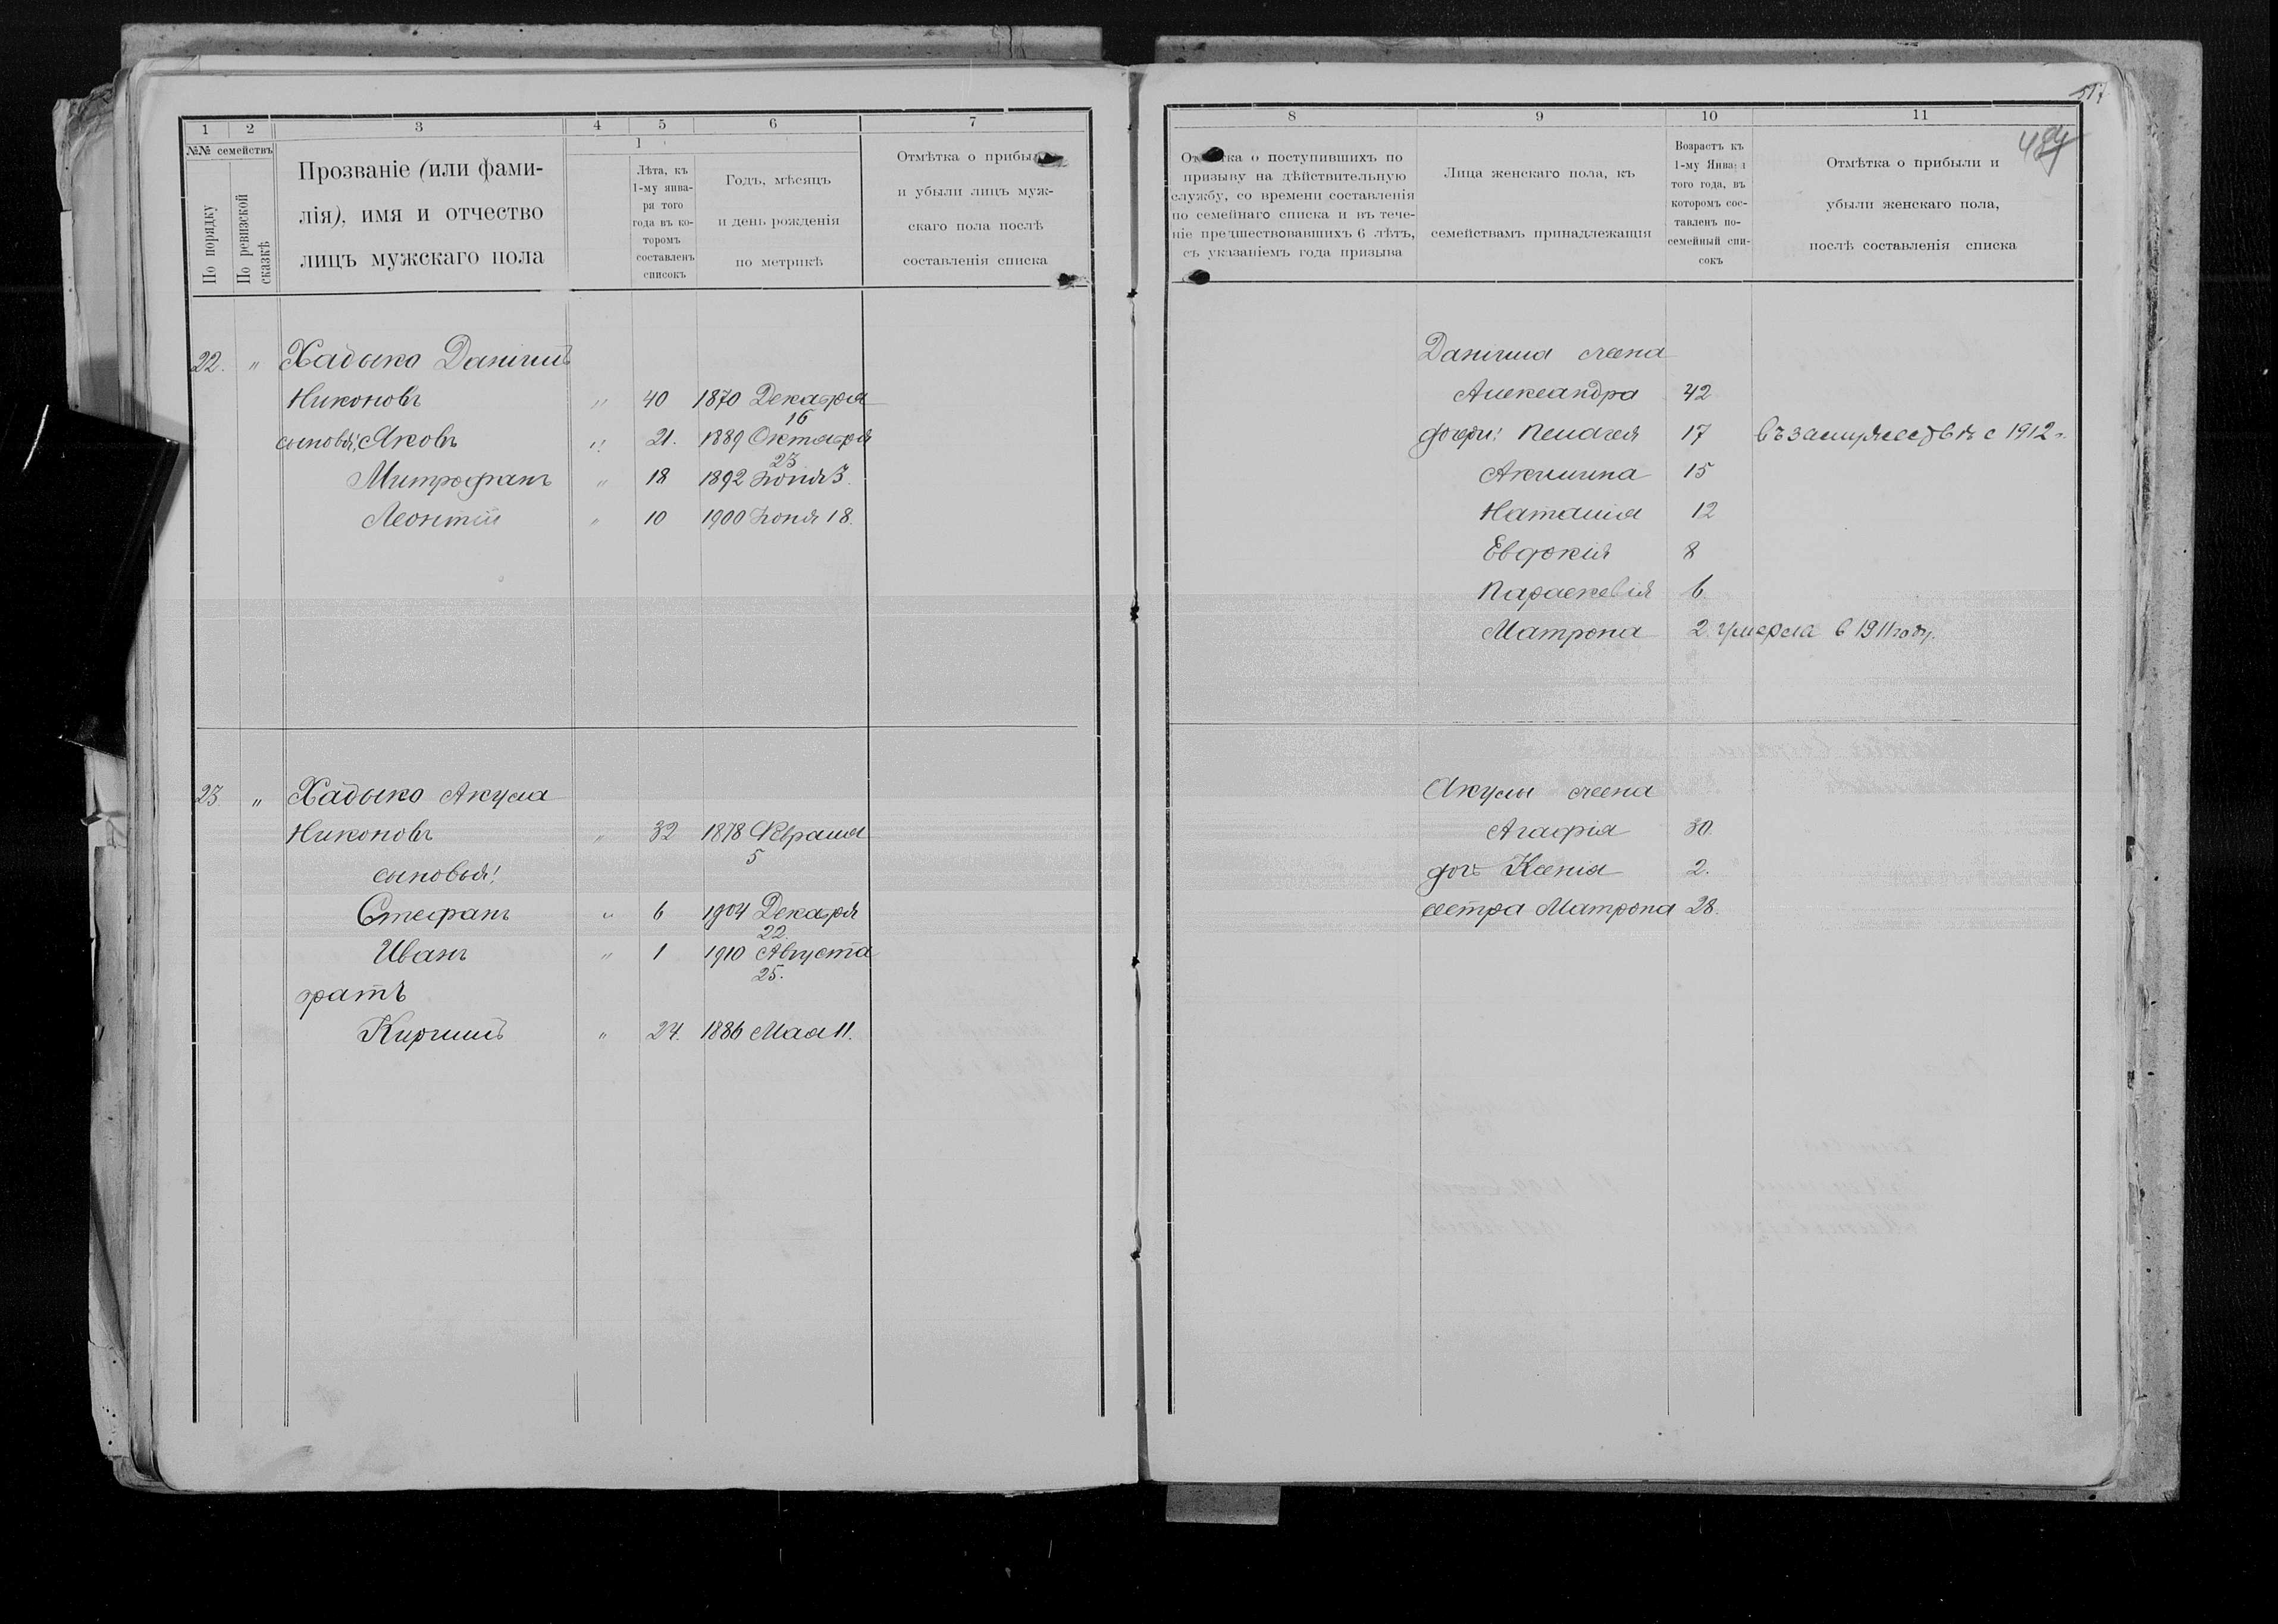 1 2 3 4 5 6 7
№№ семействъ
По порядку
По ревизской сказкѣ
Прозваніе (или фами-
лія), имя и отчество
лицъ мужскаго пола
1
Лѣта, къ
1-му янва-
ря того
года въ ко-
торомъ
составленъ
списокъ
Годъ, мѣсяцъ
и день рожденія
по метрикѣ
Отмѣтка о
и убыли лицъ муж-
скаго пола послѣ
составленія списка
22. " Хадыко Даніилъ
Никоновъ " 40 1870 Декабря
16
сыновья: Яковъ " 21. 1889 Октября
23
Митрофанъ " 18 1892 Іюня 3.
Леонтій " 10 1900 Іюня 18.
23 " Хадыко Акула
Никоновъ " 32 1878 Февраля
5
сыновья:
Стефанъ " 6 1904 Декабря
22.
Иванъ " 1 1910 Августа
25.
братъ
Кириллъ " 24. 1886 Мая 11.
517
8 9 10 11
484
о поступившихъ по
призыву на дѣйствительную
службу, со времени составленія
по семейнаго списка и въ тече-
ніе предшествовавшихъ 6 лѣтъ,
съ указаніемъ года призыва
Лица женскаго пола, къ
семействамъ принадлежащія
Возрастъ къ
1-му Января
того года, въ
которомъ сос-
тавленъ по-
семейный спи-
сокъ
Отмѣтка о прибыли и
убыли женскаго пола,
послѣ составленія списка
Даніила жена
Александра 42
дочери: Пелагея 17 въ замужествѣ с 1912 г.
Акилина 15
Наталія 12
Евдокія 8
Параскевія 6.
Матрона 2. умерла в 1911 году.
Акулы жена
Агафія 30.
дочь Ксенія 2.
сестра Матрона 28.